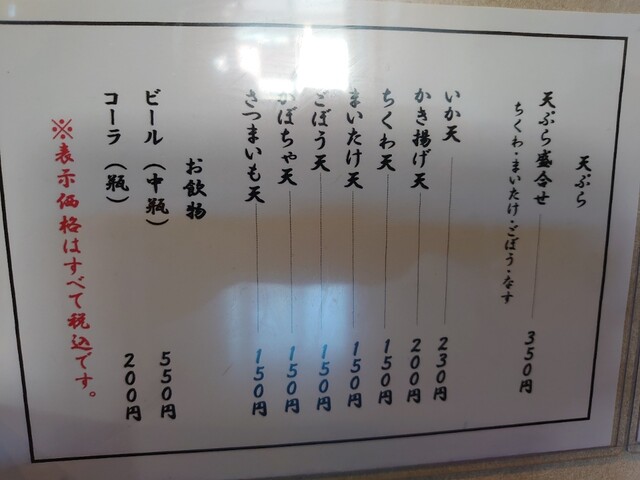 天ぷら
天ぷら盛合せ 350円
ちくわ・まいたけ・ごぼう・なす
いか天 230円
かき揚げ天 200円
ちくわ天 150円
まいたけ天 150円
ごぼう天 150円
かぼちゃ天 150円
さつまいも天 150円
お飲物
ビール(中瓶) 550円
コーラ(瓶) 200円
※表示価格はすべて税込です。